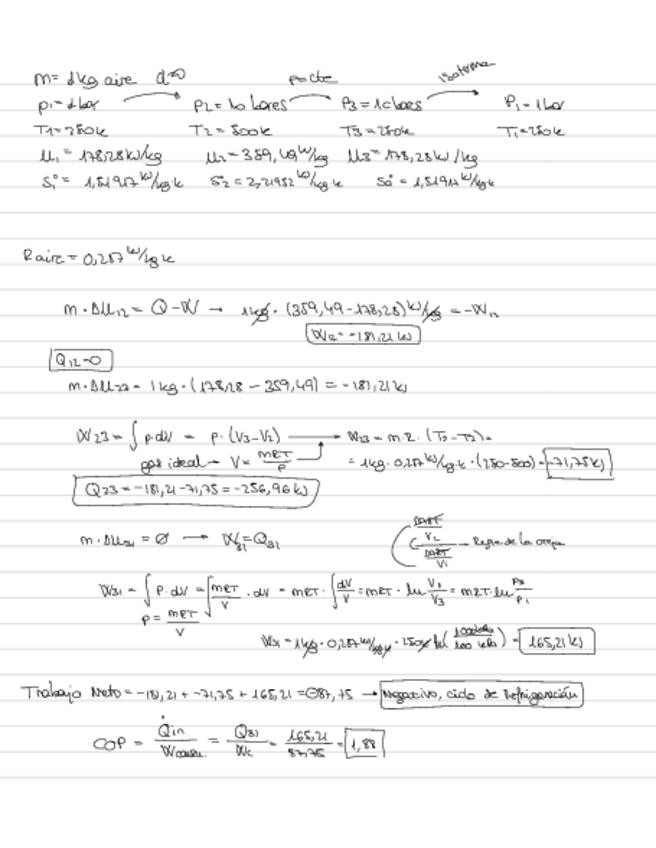 m = 1kg aire Q=0 p=cte isoterma
p1 = 1bar P2 = 10 bares P3 = 10 bares P1 = 1 bar
T1 = 250k T2 = 500k T3 = 250k T1 = 250k
u1 = 178,28 kJ/kg u2 = 359,49 kJ/kg u3 = 178,28 kJ/kg
s1° = 1,51917 kJ/kg·k s2° = 2,21952 kJ/kg·k s3° = 1,51917 kJ/kg·k
Raire = 0,287 kJ/kg k
m·Δu12 = Q - W → 1kg · (359,49 - 178,28) kJ/kg = -W12
W12 = -181,21 kJ
Q12=0
m·Δu23 = 1kg·(178,28 - 359,49) = -181,21 kJ
W23 = ∫ p·dV = p·(V3-V2) → W23 = m·R·(T3-T2) =
gas ideal → V = mRT/p = 1kg·0,287 kJ/kg·k·(250-500) = -71,75 kJ
Q23 = -181,21 - 71,75 = -256,96 kJ
m·Δu31 = Ø → W31 = Q31 Regla de la oreja
W31 = ∫ P·dV = ∫ mRT/V · dV = mRT · ∫ dV/V = mRT · ln V1/V3 = mRT·ln P3/P1
P = mRT/V
W31 = 1kg · 0,287 kJ/kg·k · 250k ln(1000kPa/100 kPa) = 165,21 kJ
Trabajo Neto = -181,21 + -71,75 + 165,21 = -87,75 → Negativo, ciclo de Refrigeración
COP = Qin/Wconsu. = Q31/Wc = 165,21/87,75 = 1,88